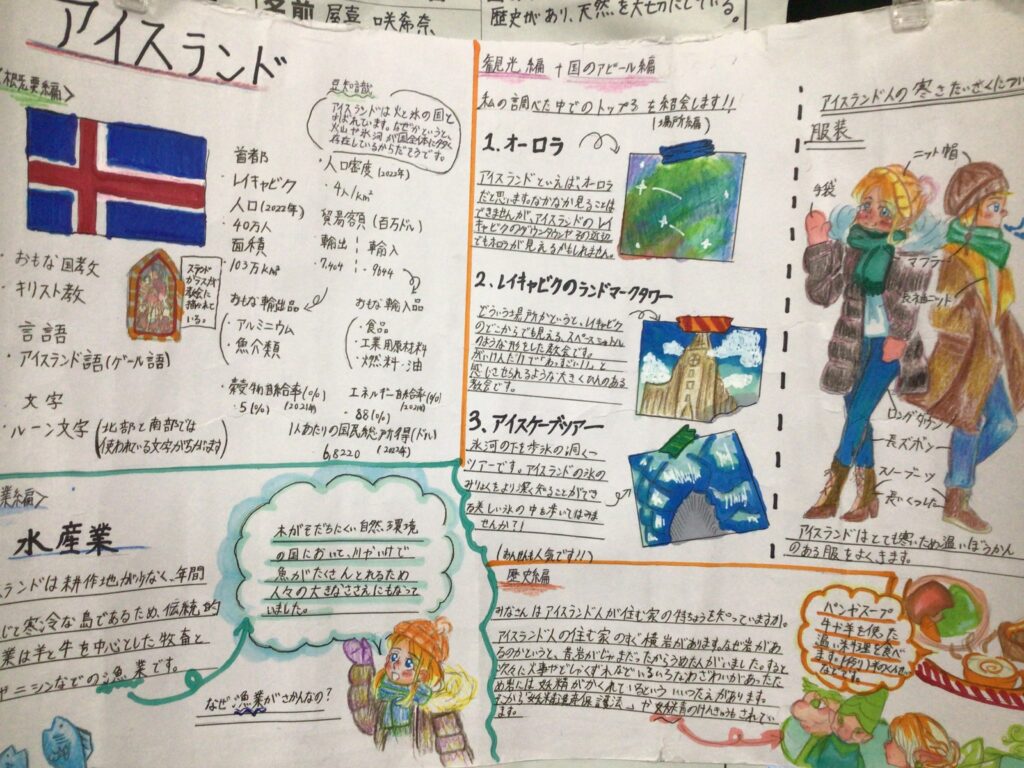 名前 屋喜 咲希奈
歴史があり、天然を大切にしている。
アイスランド
<概要編>
首都
レイキャビク
人口(2022年)
・40万人
面積
・10.3万km²
・おもな国教
・キリスト教
ステンド
ガラスだよ
教会に
描かれて
いる。
言語
・アイスランド語(ゲール語)
文字
・ルーン文字(北部と南部では
使われている文字がちがいます)
豆知識
アイスランドは火と氷の国と
よばれています。なぜかというと、
火山や氷河が国全体に多く
存在しているからだそうです。
・人口密度(2022年)
・4人/km²
貿易各額(百万ドル)
輸出 輸入
7,404 9644
おもな輸出品
・アルミニウム
・魚介類
おもな輸入品
・食品
・工業用原材料
・燃料・油
・穀物自給率(%)
・5(%)(2021年)
エネルギー自給率(%)
・88(%)(2021年)
1人あたりの国民総所得(ドル)
68220 (2022年)
観光編+国のアピール編
私の調べた中でのトップ3を紹介します!!
(場所編)
1.オーロラ
アイスランドといえば、オーロラ
だと思います。なかなか見ることは
できませんが、アイスランドのレイ
キャビクのダウンタウンやその近辺
でもオーロラが見えるかもしれません。
2.レイキャビクのランドマークタワー
どういう場所かというと、レイキャビク
のどこからでも見える、スペースシャトル
のような形をした教会です。
感じさせられるような大きくのんのある
教会です。
3.アイスケーブツアー
氷河の下を歩氷の洞くつ
ツアーです。アイスランドの氷の
みりょくをより深く知ることができ
美しい氷の中を歩いてはみま
せんか?!
アイスランド人の寒さたいさくについ
服装
ニット帽
手袋
マフラー
長そでニット
ロングダウン
長ズボン
スノーブーツ
長いくつした
アイスランドはとても寒いため温いぼうかん
のある服をよくきます。
業編>
水産業
スランドは耕作地が少なく、年間
じて寒冷な島であるため、伝統的
業は羊と牛を中心とした牧畜と
ャニシンなどでの漁業です。
木がそだちにくい自然、環境
の国において、川やいけで
魚がたくさんとれるため
人々の大きなささえにもなって
いました。
なぜ漁業がさかんなの?
歴史編
みなさんはアイスランド人が住む家の特ちょうを知っていますか。
アイスランド人の住む家のすぐ横岩があります。なぜ岩があ
るのかというと、昔岩がじゃまだったからうめた人がいました。すると
次々に火事やどしゃくずれなどいろいろなわざわいがあった
ため岩には妖精がかくれているという いいつたえがあります。
ます。
パンギスープ
牛や羊を使った
温い料理を食べ
ます。